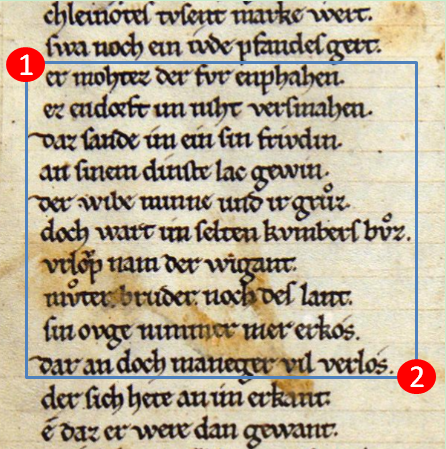 chleinotes tvſent marke wert.
ſwa noch ein ivde pfandeſ gert.
1
er mohtez der fvr enphahen.
ez endorft im niht verſmahen.
daz ſande im ein ſin frivdin.
an ſinem dinſte lac gewin.
der wibe minne und ir grůz.
doch wart im ſelten kvmberſ bůz.
vrlōp nam der wigant.
můter. brůder. noch deſ lant.
ſin ovge nimmer mer erkos.
dar an doch maneger vil verlos.
2
der ſich hete an im erkant.
ê daz er were dan gewant.